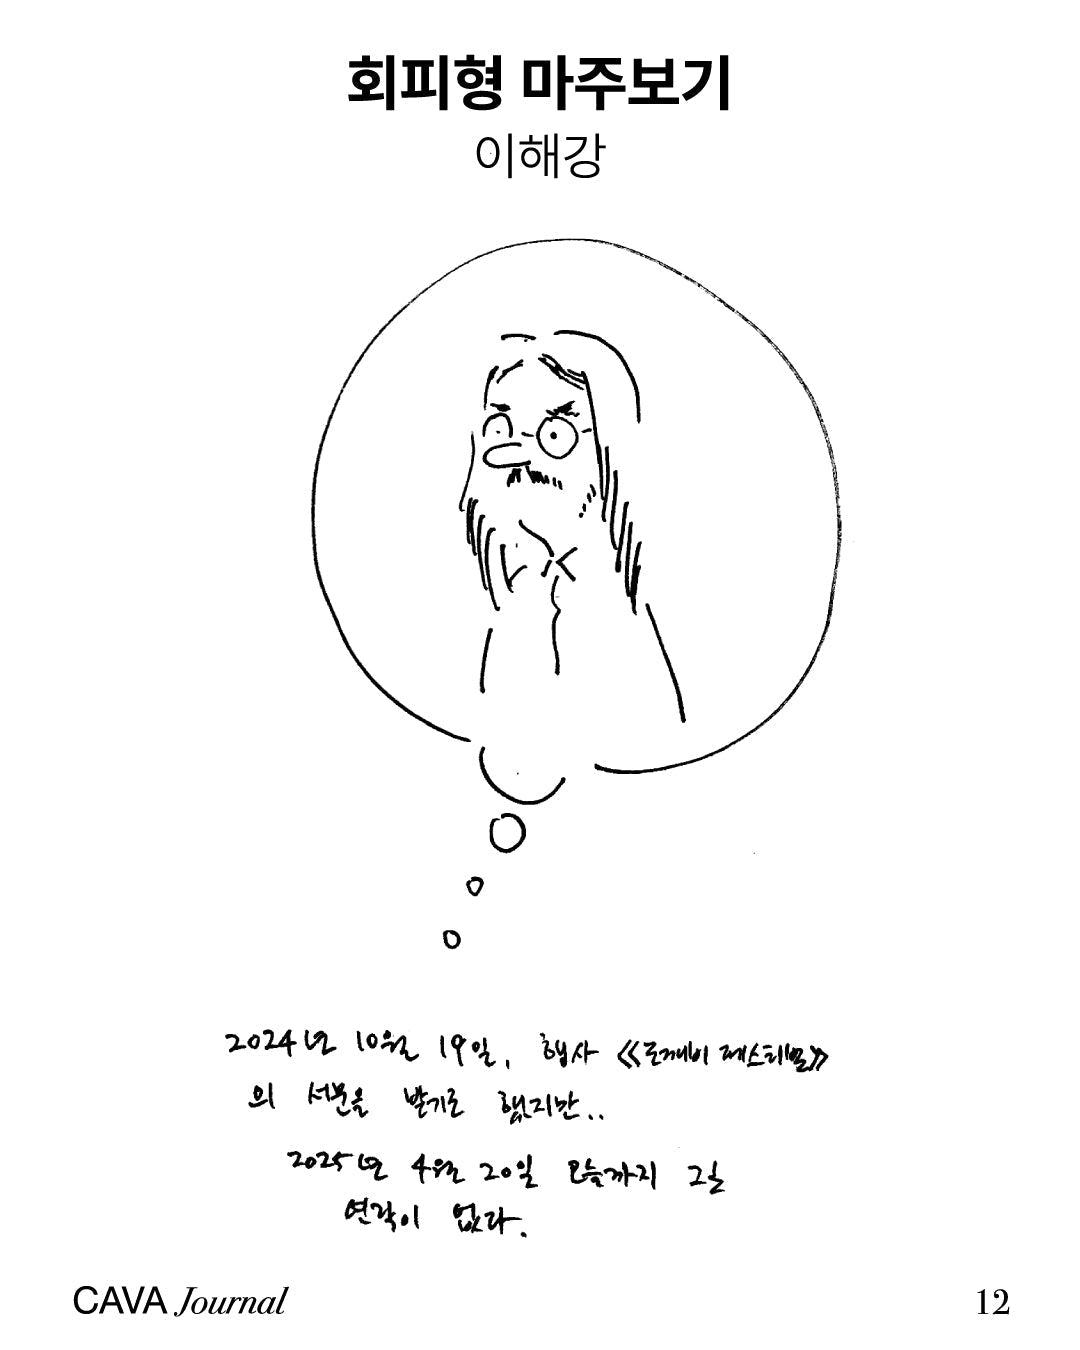 회피형 마주보기
이해강
2024년 10월 19일, 행사 《도깨비 페스티벌》
의 서문을 받기로 했지만..
2025년 4월 20일 오늘까지 그는
연락이 없다.
CAVA Journal
12